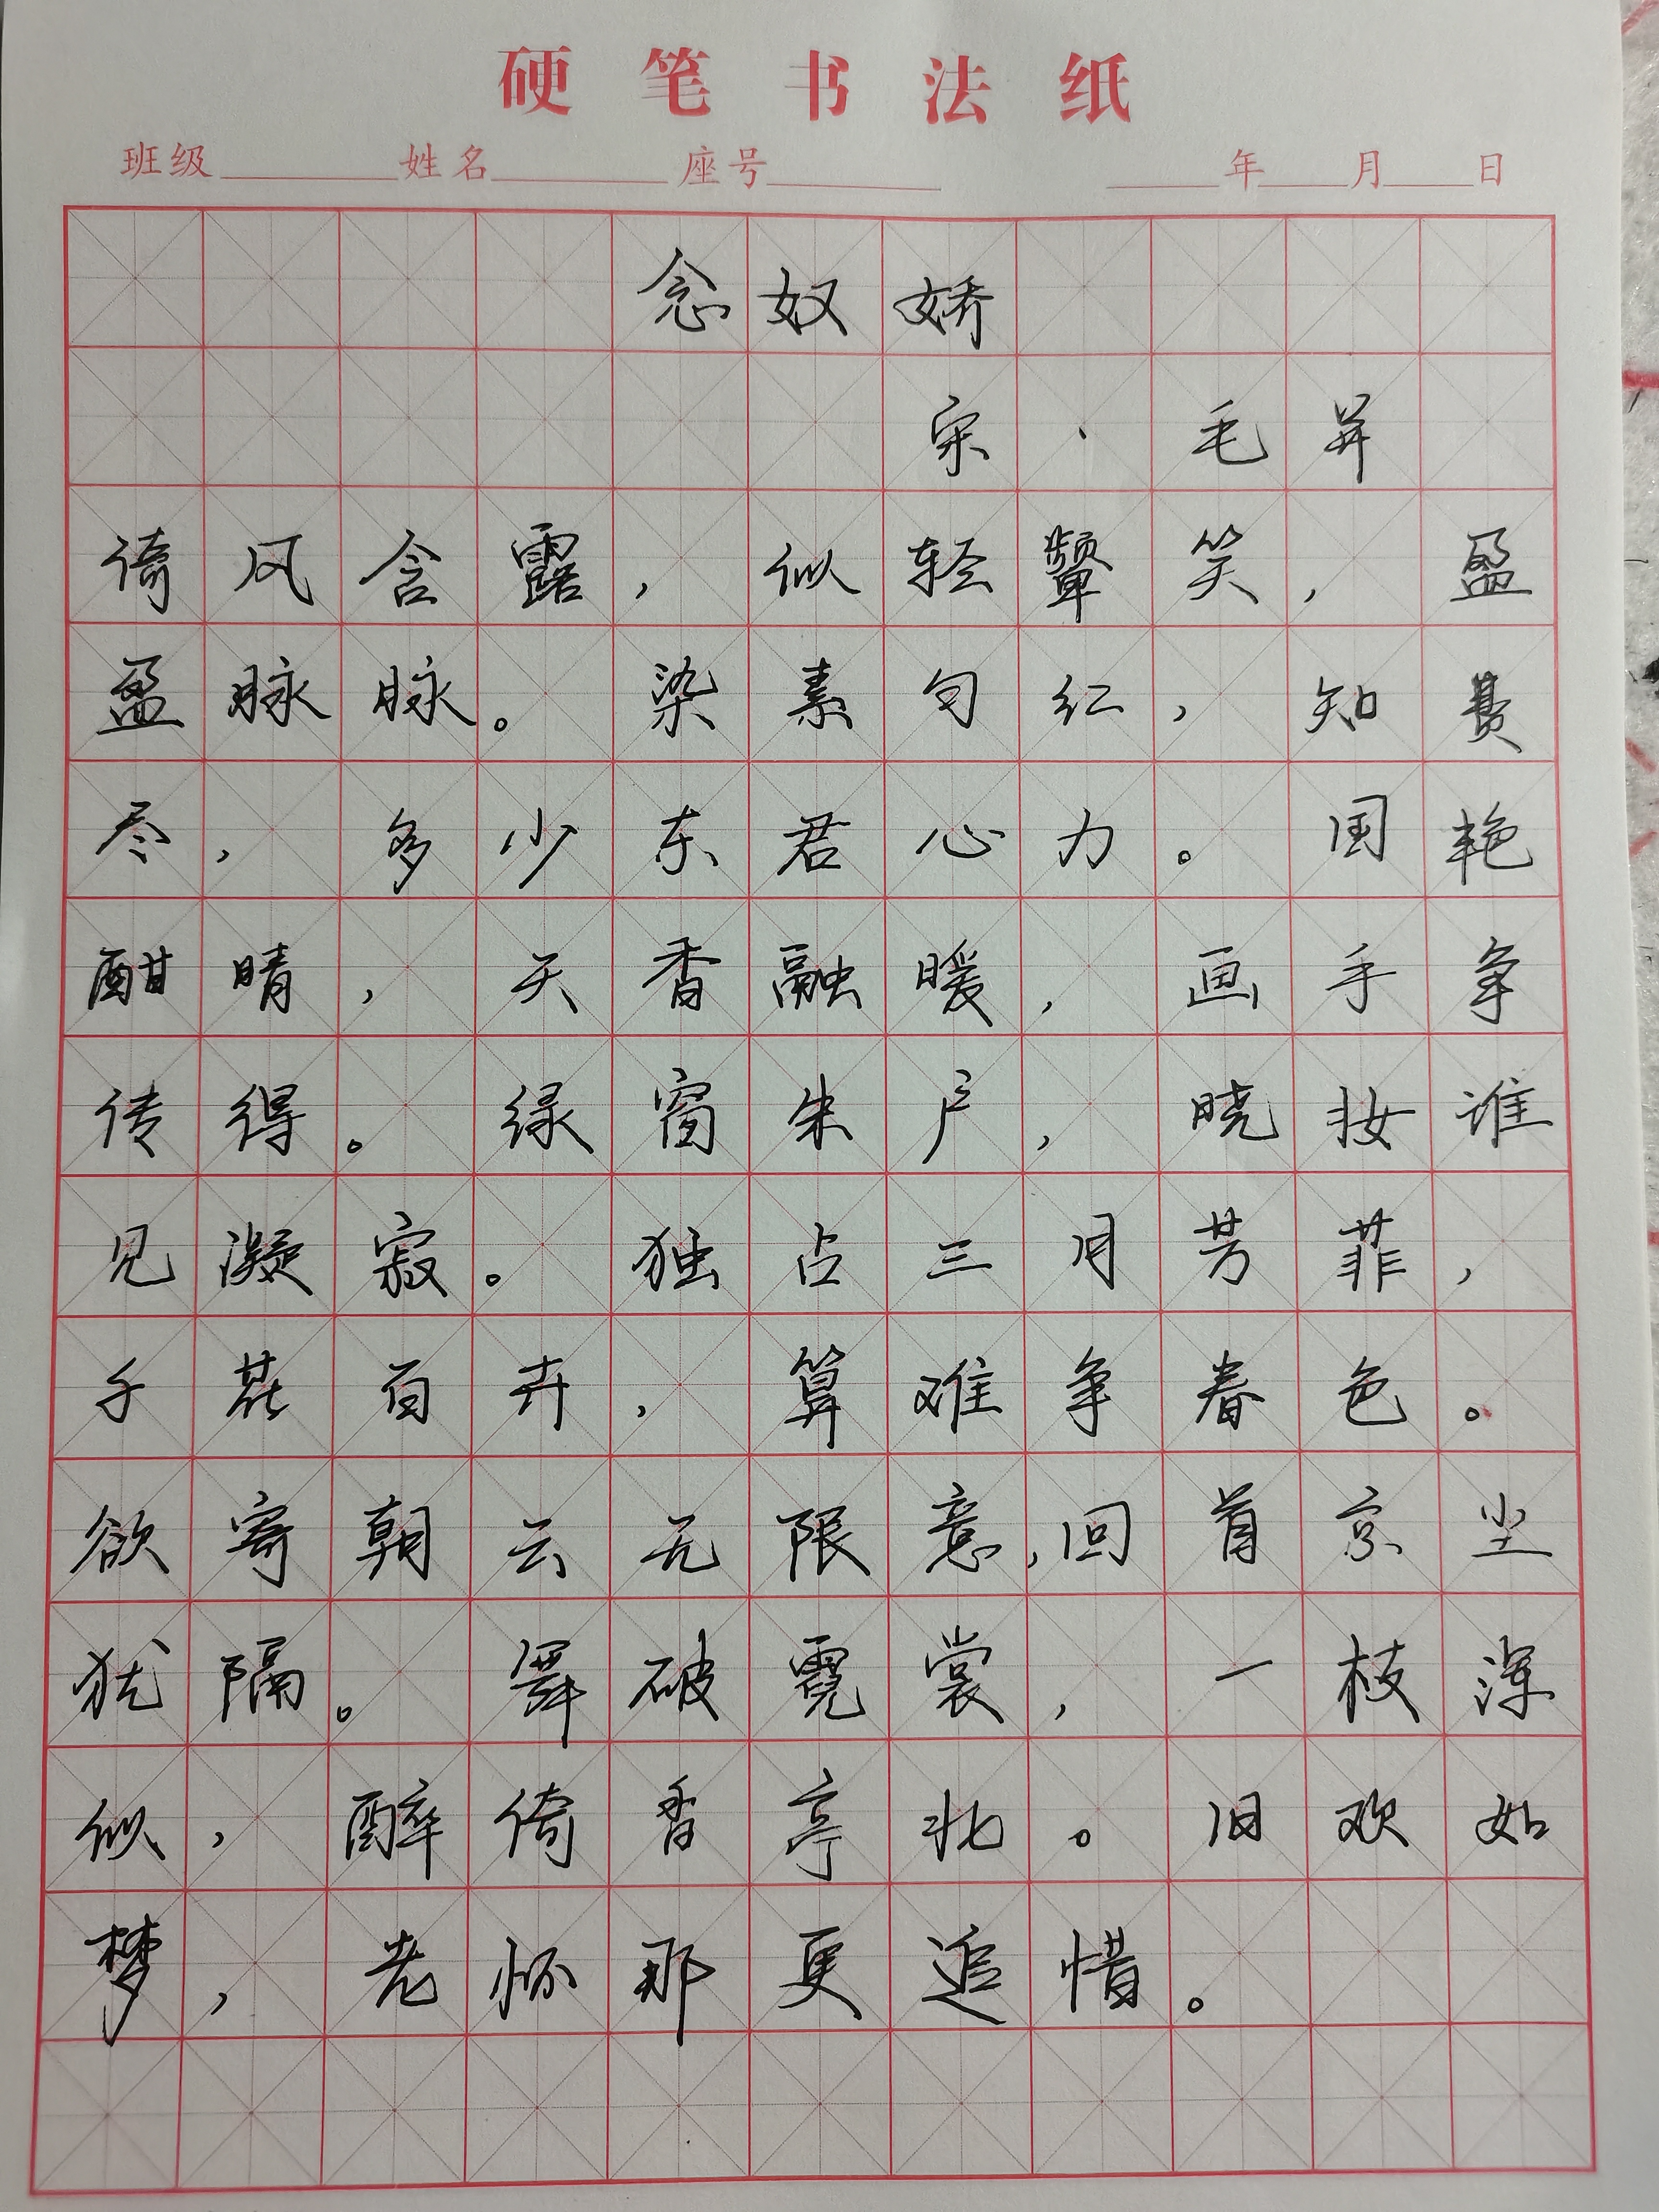 硬笔书法纸
班级 姓名 座号 年 月 日
念奴娇
宋·毛并
倚风含露，似轻颦笑，盈
盈脉脉。染素匀红，知费
尽，多少东君心力。国艳
酣晴，天香融暖，画手争
传得。绿窗朱户，晓妆谁
见凝寂。独占三月芳菲，
千花百卉，算难争春色。
欲寄朝云无限意，回首京尘
犹隔。舞破霓裳，一枝浑
似，醉倚香亭北。旧欢如
梦，老怀那更追惜。